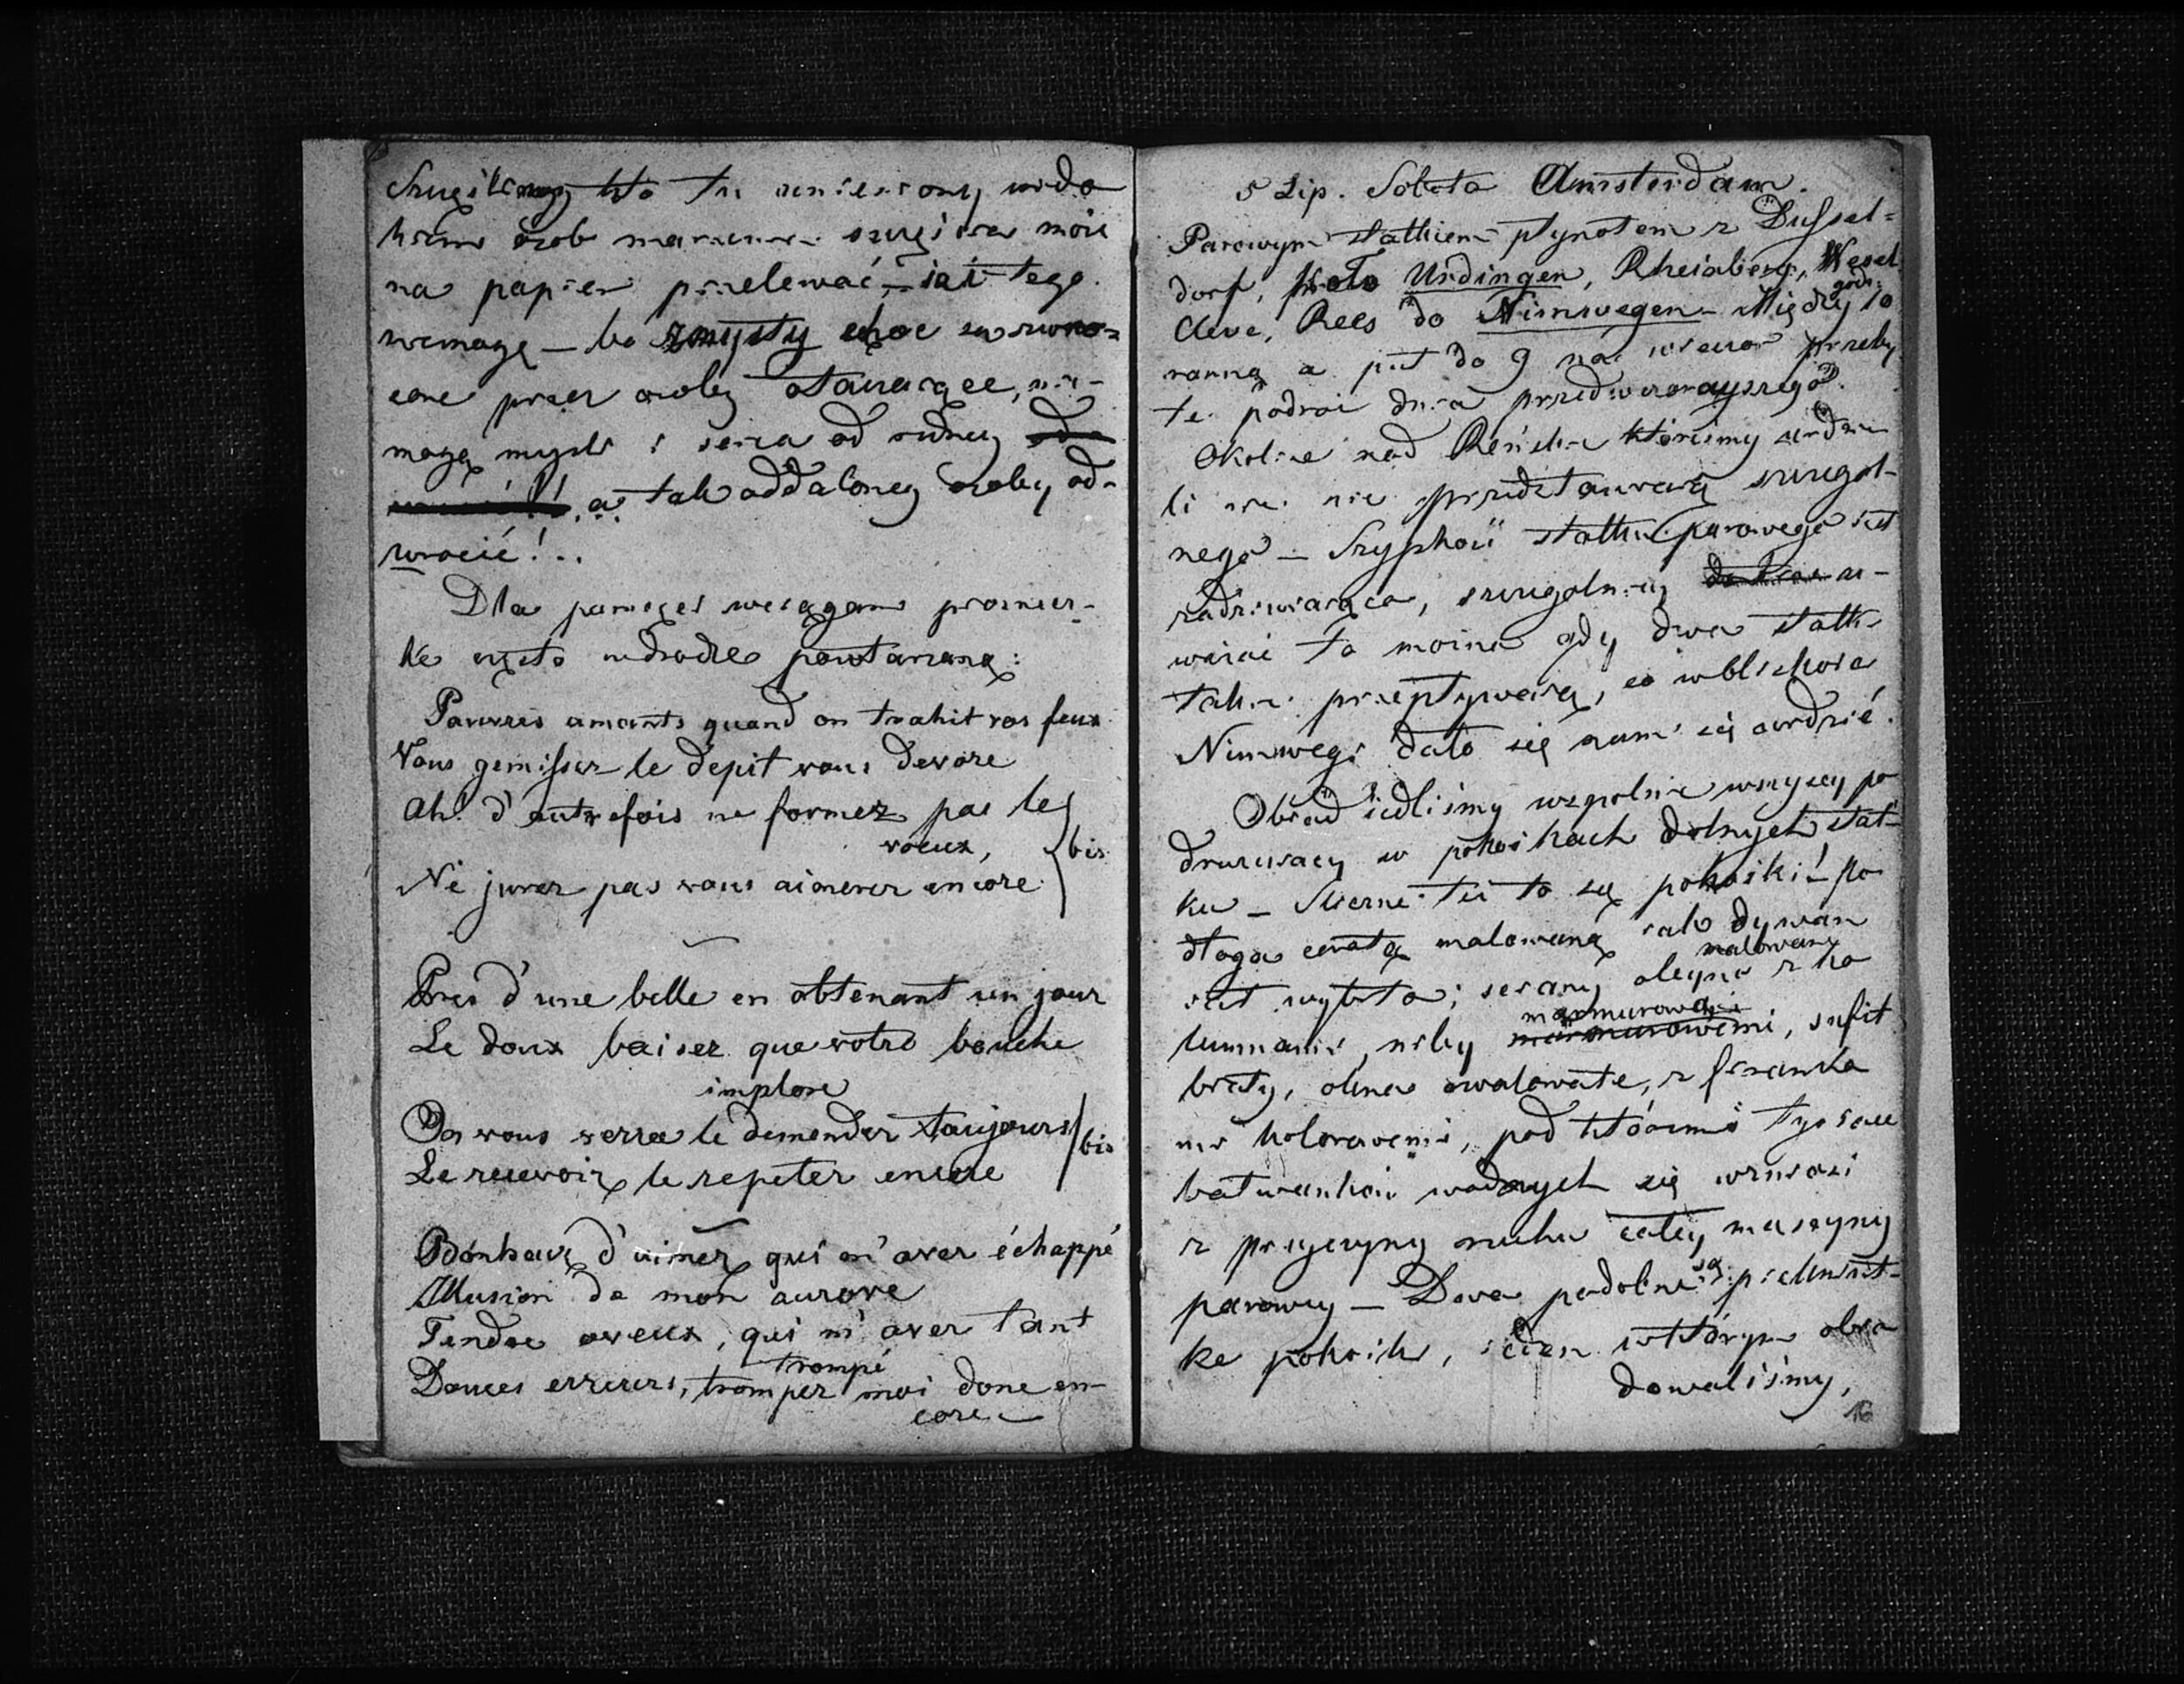 Szczęśliwszy kto tu uniesiony wido
kiem osób marzenia szczęścia może
na papier przelewać, ja i tego
niemogę — bo zmysły choć zwró-
cone przez osoby otaczające, nie
mogę myśli i serca od iedney
a tak oddaloney osoby od-
wrócić!..
Dla pamięci wciągam piosnecz-
kę często w drodze powtarzaną:
Pauvres amants quand on trahit vos feux
Vous gemissez le depit vous devore
Ah! d'autrefois ne formez pas les
voeux,
bis
Ne jurez pas vous aimerez encore
Pres d'une belle en obtenant un jour
Le doux baiser que votre bouche
implore
On vous verra le demander toujours
bis
Le recevoir, le repeter encore
Bonheur d'aimer qui m'avez échappé
Illusion de mon aurore
Tendre aveux, qui m'avez tant
trompé
Douces erreurs, tromper moi donc en-
core
5 Lip. Sobota Amsterdam.
Parowym statkiem płynołem z Dussel-
dorf, koło Urdingen, Rheinberg, Wesel
Cleve, Rees do Nimwegen — Między 10
godz.
ranną a pół do 9 na wieczor przeby
te podroż dnia przedwczorayszego.
Okolice nad Reńskie któreśmy widzie
li nic nie przedstawiaią szczegol-
nego — Szybkość statku parowego iest
zadziwiaiąca, szczegolniey uwa-
waźać to można gdy dwa statki
takie przepływaią, co w bliskości
Nimwegi dało się nam się widzieć.
Obiad iedliśmy wspolnie wszyscy po
drużuiący w pokoikach dolnych stat-
ku — Sliczne też to są pokoiki! po
dłoga ceratą malowaną iak dywan
iest wybita; sciany oleyno z ko
malowane
lumnami, niby marmurowemi, sufit
marmurowemi
biały, okna owalowate, z firanka
mi kolorowemi, pod którymi tysiące
bałwanków wodnych się wznosi
z przyczyny ruchu całey maszyny
parowey — Dwa podobne są piekniut-
kie pokoiki, ieden w którym obia
dowaliśmy,
16